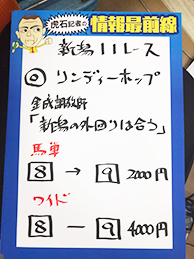 虎石記者の
情報最前線
新潟11レース
◎ リンディーホップ
金成調教師
「新潟の外回りは合う」
馬単
8 → 9 2000円
ワイド
8 ― 9 4000円